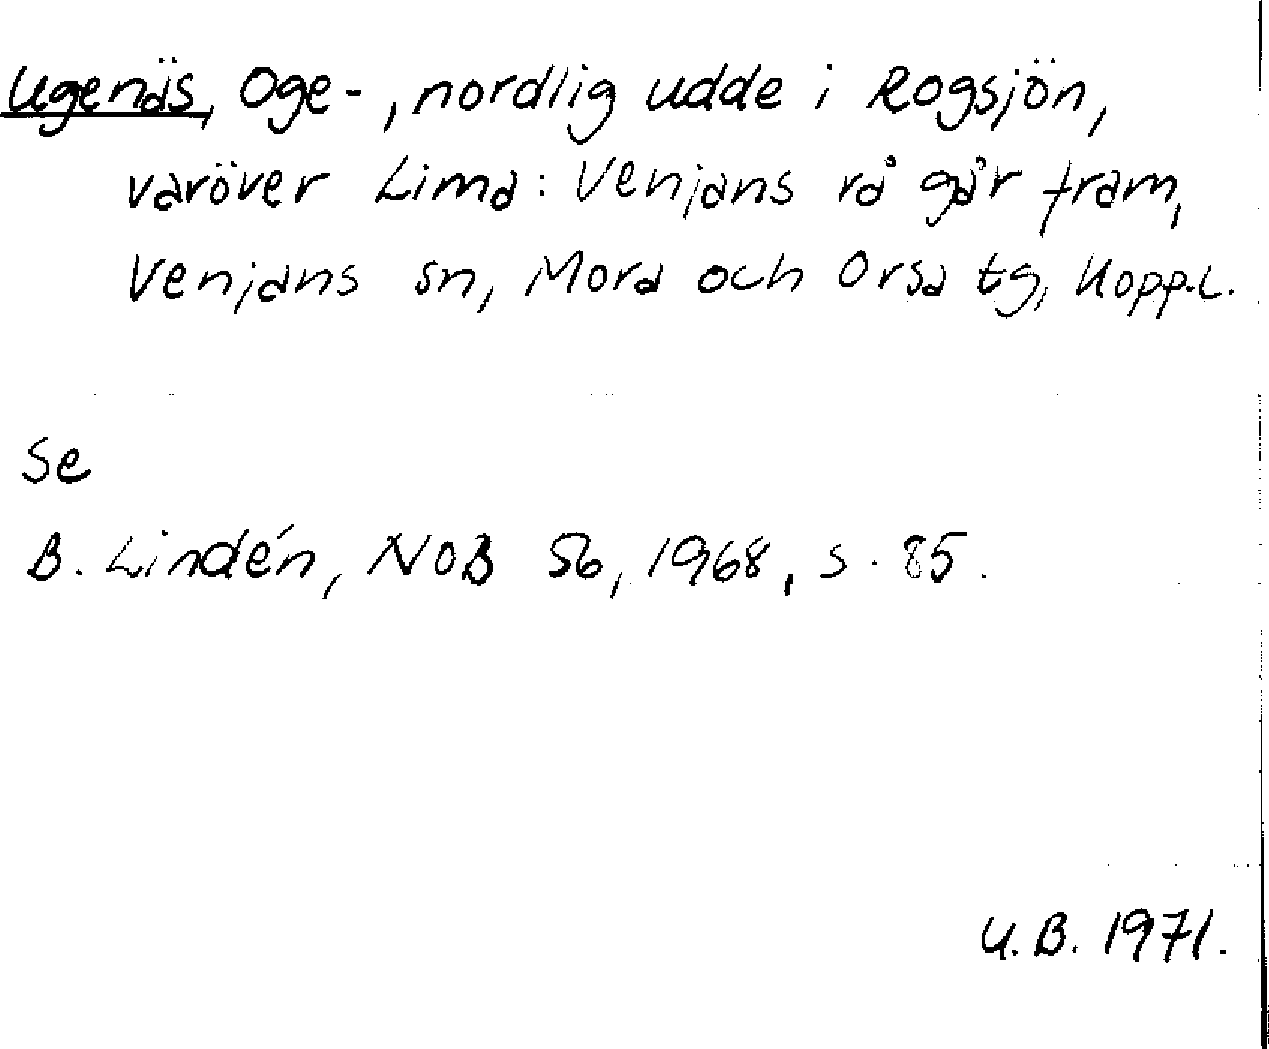 Ugenäs, Oge-, nordlig udde i Rogsjön,
varöver Lima: Venjans rå går fram,
Venjans sn, Mora och Orsa tg, Kopp.L.
Se
B. Lindén, NoB 56, 1968, s. 85.
U.B. 1971.